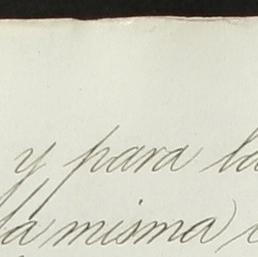 y para la
la misma